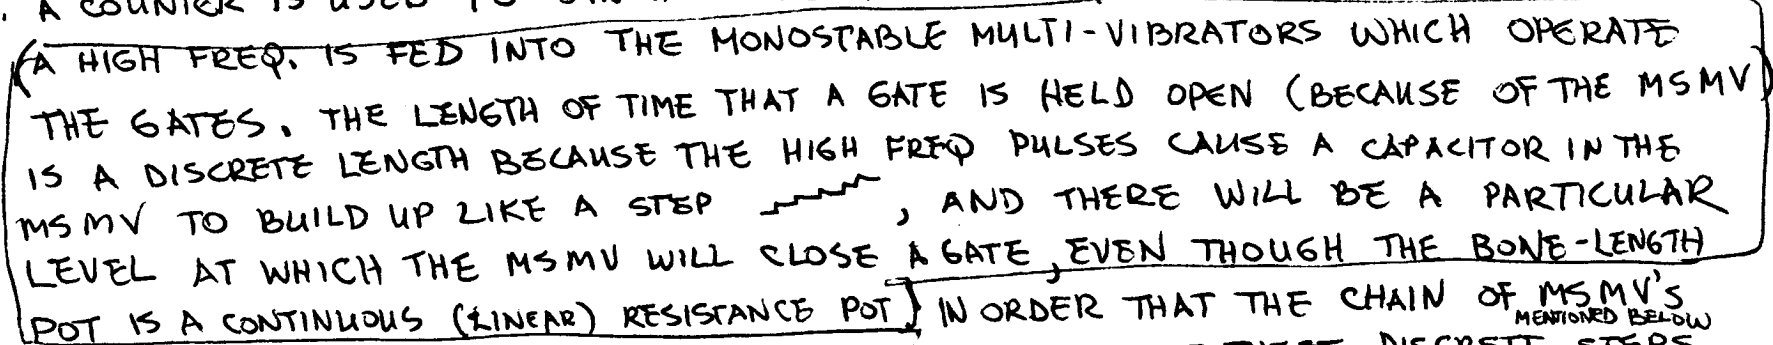 . A COUNTER IS USED TO
(A HIGH FREQ. IS FED INTO THE MONOSTABLE MULTI-VIBRATORS WHICH OPERATE
THE GATES. THE LENGTH OF TIME THAT A GATE IS HELD OPEN (BECAUSE OF THE MSMV)
IS A DISCRETE LENGTH BECAUSE THE HIGH FREQ PULSES CAUSE A CAPACITOR IN THE
MSMV TO BUILD UP LIKE A STEP , AND THERE WILL BE A PARTICULAR
LEVEL AT WHICH THE MSMV WILL CLOSE A GATE, EVEN THOUGH THE BONE-LENGTH
POT IS A CONTINUOUS (LINEAR) RESISTANCE POT) IN ORDER THAT THE CHAIN OF MSMV'S
MENTIONED BELOW
THESE DISCRETE STEPS